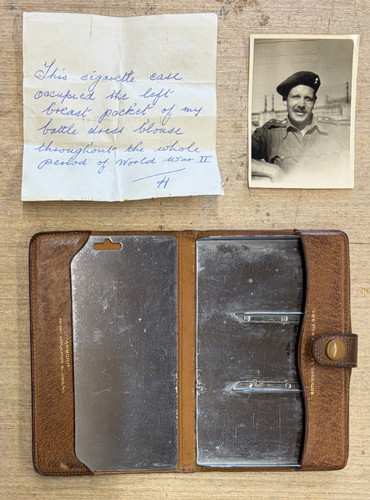 This cigarette case
occupied the left
breast pocket of my
battle dress blouse
throughout the whole
period of World War II
H